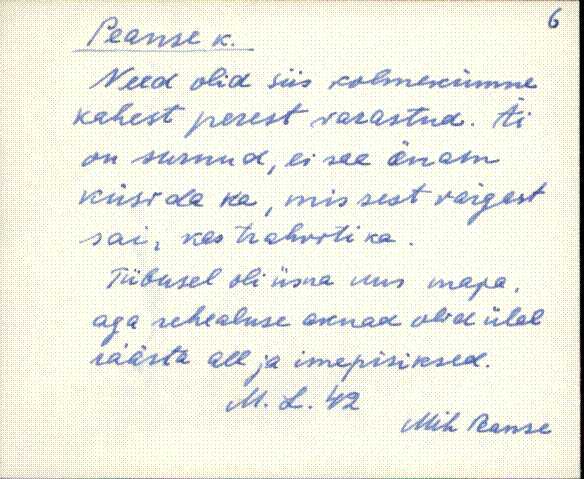 6
Peanse k.
Need olid siis kolmekümne
kahest perest varastud. Äi
on surnud, ei saa enam
küsida ka, mis sest vargast
sai, kas trahviti ka.
Tiibusel oli üsna uus maja,
aga rehealuse aknad olid ülal
räästa all ja imepisiksed.
M. L. 42
Mih Peanse